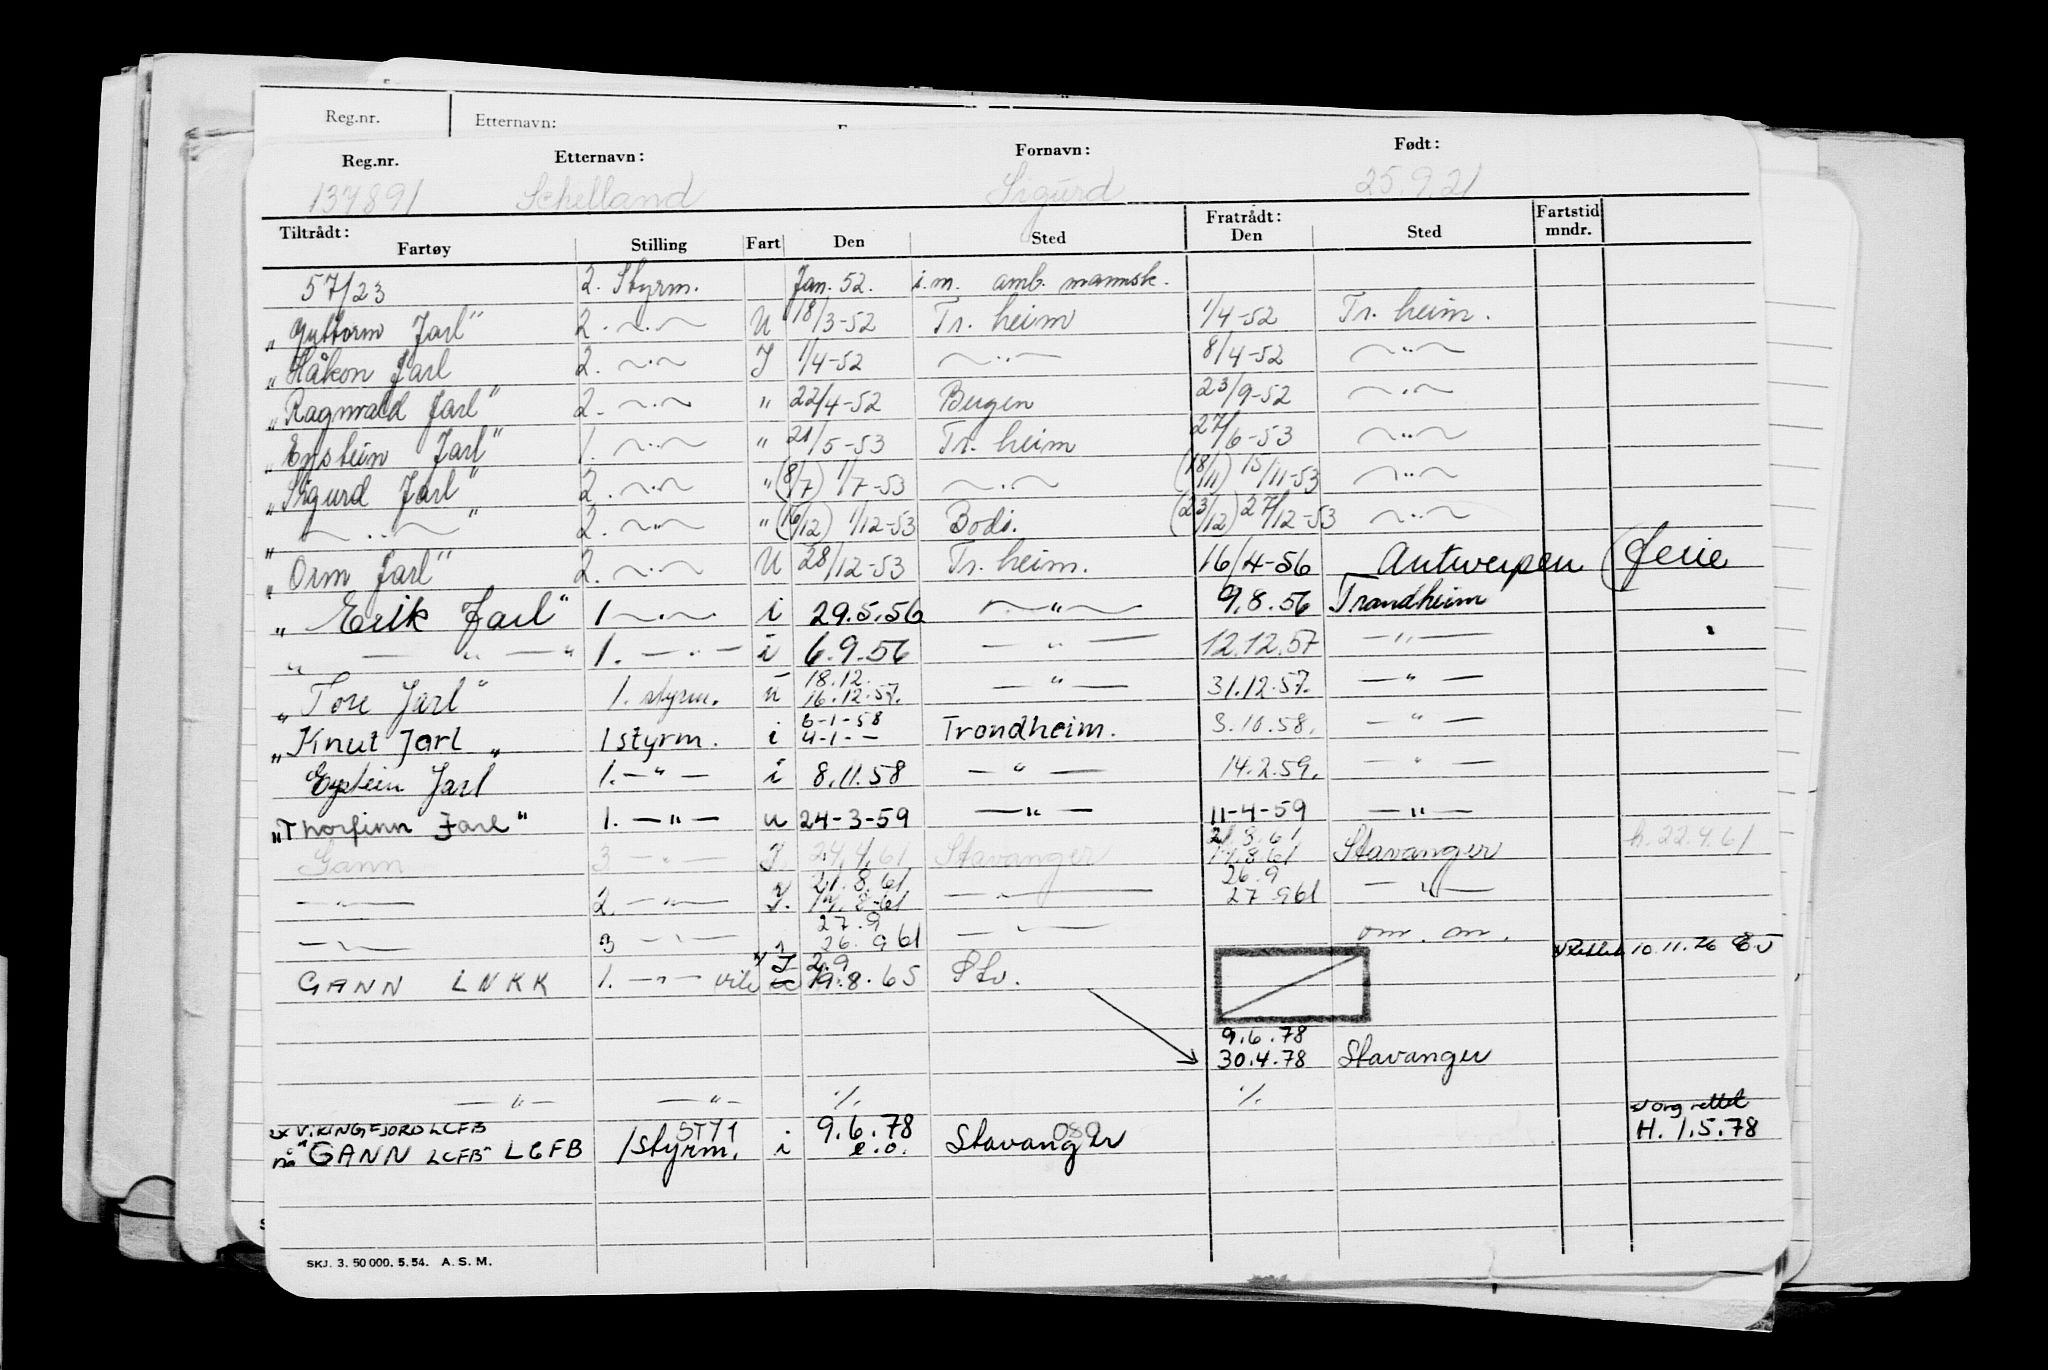 Reg.nr. Etternavn:
Reg.nr. Etternavn: Fornavn: Født:
137891 Schelland Sigurd 25.9.21
Tiltrådt: Fratrådt: Fartstid
Fartøy Stilling Fart Den Sted Den Sted mndr.
57/23 2. Styrm. Jan. 52. i.m. amb. mannsk.
"Guttorm Jarl" 2. ~.~ U 18/3-52 Tr. heim 1/4-52 Tr. heim.
"Håkon Jarl 2. ~.~ I 1/4-52 ~..~ 8/4-52 ~..~
"Ragnvald Jarl" 2. ~.~ " 22/4-52 Bergen 23/9-52 ~.~
"Eystein Jarl" 1. ~.~ " 21/5-53 Tr. heim 27/6-53 ~..~
"Sigurd Jarl" 2. ~.~ " (8/7) 1/7-53 ~.~ (18/11) 15/11-53 ~..~
" ~..~ " 2. ~..~ " (16/12) 1/12-53 Bodø. (23/12) 27/12-53 ~..~
"Orm Jarl" 2. ~.~ U 28/12-53 Tr. heim. 16/4-56 Antwerpen (ferie
"Erik Jarl" 1 ~.~ i 29.5.56 ~"~ 9.8.56 Trondheim
" — " — " 1. — " — i 6.9.56 — " — 12.12.57 — " —
18.12.
"Tore Jarl" 1. styrm. u 16.12.57. — " — 31.12.57. — " —
6-1-58
"Knut Jarl " 1 styrm. i 4-1- — Trondheim. 3.10.58. — " —
Eystein Jarl 1. — " — i 8.11.58 — " — 14.2.59. — " —
"Thorfinn Jarl" 1. — " — u 24-3-59 — " — 11-4-59 — " —
21.8.61
Gann 3 — " — I. 24.4.61 Stavanger 14.8.61 Stavanger h. 22.4.61
21.8.61 26.9
— " — 2. — " — I. 14.8-61 — " — 27 961 — " —
27.9
— " — 3 — " — 26. 961 — " — om. m.
Rettet 10.11.76
I 2.9
GANN LNKK 1. — " — 19.8.65 Stv.
9.6.78
30.4.78 Stavanger
— " — — " — %. %.
Vorg rettet
ex VIKINGFJORD LCFB STY1 9.6.78 089 H. 1.5.78
nå "GANN LCFB" LGFB 1 styrm. i e.o. Stavanger
SKJ. 3. 50 000. 5. 54. A. S. M.